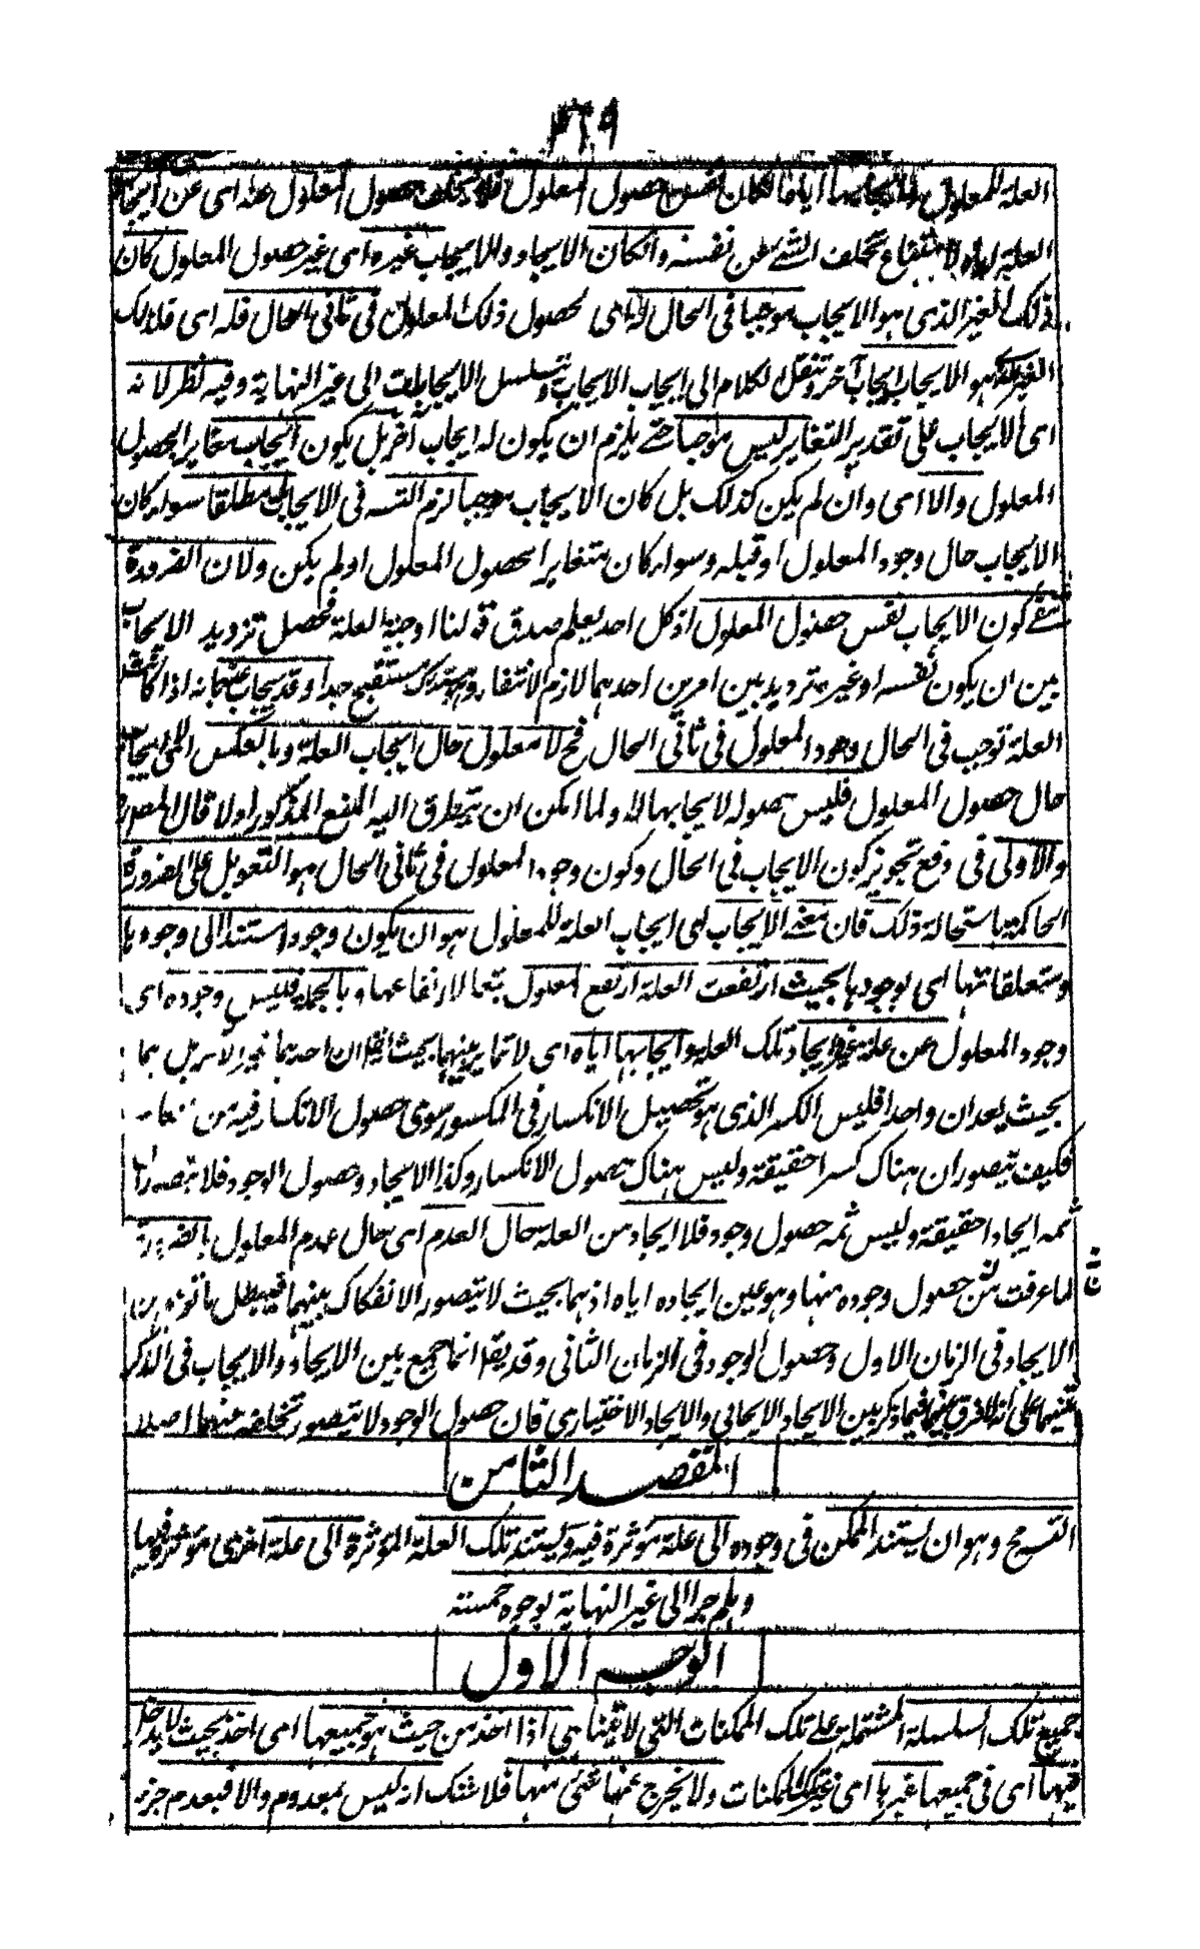 ٣٢٩
العلة للمعلول وايجابها اياه فالكان نفس حصول المعلول فلا يتخلف حصول المعلول عنه اى عن ايجاب
العلة اياه لامتناع تخلف الشئ عن نفسه وانكان الايجاد والايجاب غيره اى غير حصول المعلول كان
ذلك الغير الذى هو الايجاب موجبا فى الحال اى لحصول ذلك المعلول فى ثانى الحال فله اى فلذلك
الغير هو الايجاب ايجاب آخر وتنقل الكلام الى ايجاب الايجاب وتتسلسل الايجابات الى غير النهاية وفيه نظر لانه
اى الايجاب على تقدير التغاير ليس موجبا حتى يلزم ان يكون له ايجاب آخر بل يكون ايجاب مغاير الحصول
المعلول والا اى وان لم يكن كذلك بل كان الايجاب موجبا لزم التسه فى الايجاب مطلقا سواء كان
الايجاب حال وجود المعلول او قبله وسواء كان متغاير الحصول المعلول او لم يكن ولان الضرورة
تنفى كون الايجاب نفس حصول المعلول اذ كل احد يعلم صدق قولنا اوجبته العلة فحصل ترديد الايجاب
بين ان يكون نفسه او غيره ترديد بين امرين احدهما لازم الانتفاء وهو مستدرك مستقبح جدا وقد يجاب عنهما بانه اذا كانت
العلة توجب فى الحال وجود المعلول فى ثانى الحال فح لا معلول حال ايجاب العلة وبالعكس اى لا ايجاب
حال حصول المعلول فليس حصوله لايجابها له ولما امكن ان يتطرق اليه المنع المذكور اولا قال المصور
والاولى فى دفع تجويز كون الايجاب فى الحال وكون وجود المعلول فى ثانى الحال هو التعويل على الضرورة
الحاكمة باستحالة ذلك فان معنى الايجاب اى ايجاب العلة للمعلول هو ان يكون وجوده استندا الى وجودها
ومتعلقا بها اى بوجودها بحيث ارتفعت العلة ارتفع المعلول تبعا لارتفاعها وبالجملة فليس وجوده اى
وجود المعلول عن علة غير ايجاد تلك العلة وايجابها اياه اى لا تمايز بينهما بحيث ان احدهما غير الآخر بل هما
بحيث يعدان واحدا فليس الكسر الذى هو تحصيل الانكسار فى المكسور سوى حصول الانكسار فيه من
فكيف يتصور ان هناك كسرا حقيقة وليس هناك حصول الانكسار وكذا الايجاد وحصول الوجود فلا يتصور ان
ثمه ايجاد احقيقة وليس ثمه حصول وجود فلا ايجاد من العلة حال العدم اى حال عدم المعلول بالضرورة
لما عرفت من ان حصول وجوده منها وهو عين ايجاده اياه اذهما بحيث لا يتصور الانفكاك بينهما فيبطل ما توهم من
الايجاد فى الزمان الاول وحصول الوجود فى الزمان الثانى وقد يقال انما جمع بين الايجاد والايجاب فى الذكر
تنبيها على انه لا فرق بينهما فيما ذكر بين الايجاد الايجابى والايجاد الاختيارى فان حصول الوجود لا يتصور تخلفه عنهما اصلا
المقصد الثامن
التسلسل مح وهو ان يستند الممكن فى وجوده الى علة مؤثرة فيه ويستند تلك العلة المؤثرة الى علة اخرى مؤثرة فيها
وهلم جرا الى غير النهاية لوجوه خمسة
الوجه الاول
جميع تلك السلسلة المشتملة على تلك الممكنات التى لا تتناهى اذا اخذ من حيث هو جميعها اى اخذ بحيث لا يدخل
فيها اى فى جميعها غيرها اى غير تلك الممكنات ولا يخرج عنها شئ منها فلا شك انه ليس بمعدوم والا فبعدم جزء